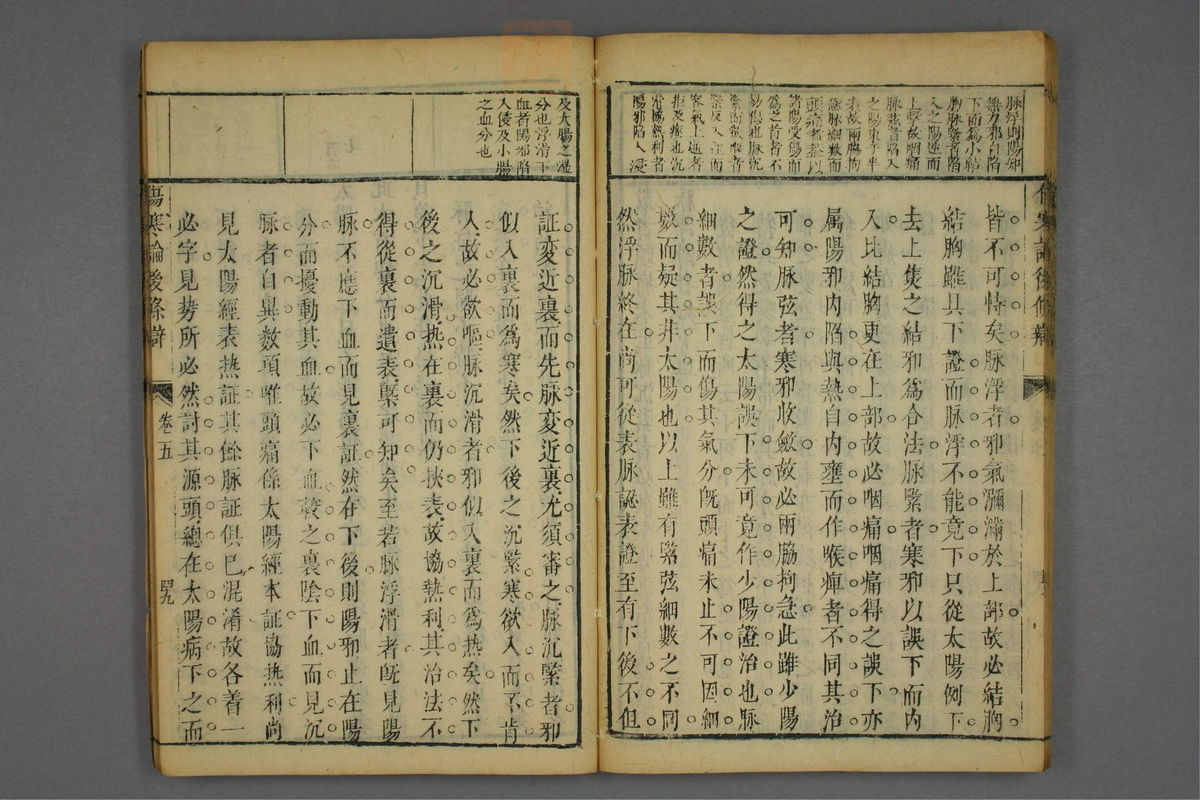 脉浮則陽邪
無力邪自陷
下而為小結
胸脉緊者陷
入之陽逆而
上擊故咽痛
脉弦者陷入
之陽東于半
表故兩脇拘
急脉細數而
頭痛者蓋以
諸陽受傷而
為之首者不
易傷也脉沉
緊而嘔者
緊反入裏而
客氣上逆者
拒及痰也沉
滑協熱利者
陽邪陷入浸
皆不可恃矣脉浮者邪氣瀰滿於上部故必結胸
結胸雖具下證而脉浮不能竟下只從太陽例下
去上焦之結邪為合法脉緊者寒邪以誤下而内
入比結胸更在上部故必咽痛咽痛得之誤下亦
屬陽邪内陷與熱自内壅而作喉痺者不同其治
可知脉弦者寒邪收斂故必兩脇拘急此雖少陽
之證然得之太陽誤下未可竟作少陽證治也脉
細數者誤下而傷其氣分既頭痛未止不可因細
數而疑其非太陽也以上雖有緊弦細數之不同
然浮脉終在尚可從表脉認表證至有下後不但
傷寒論後條辯
及大腸之溼
分也浮滑下
血者陽邪陷
入侵及小腸
之血分也
証変近裏而先脉変近裏尤須審之脉沉緊者邪
似入裏而為寒矣然下後之沉緊寒欲入而不肯
入故必欲嘔脉沉滑者邪似入裏而為熱矣然下
後之沉滑熱在裏而仍挾表故協熱利其治法不
得從裏而遺表槩可知矣至若脉浮滑者既見陽
脉不應下血而見裏証然在下後則陽邪止在陽
分而擾動其血故必下血較之裏陰下血而見沉
脉者自異数項唯頭痛係太陽經本証協熱利尚
見太陽經表熱証其餘脉証俱已混淆故各着一
必字見势所必然討其源頭總在太陽病下之而
傷寒論後条辯
卷五
四十九